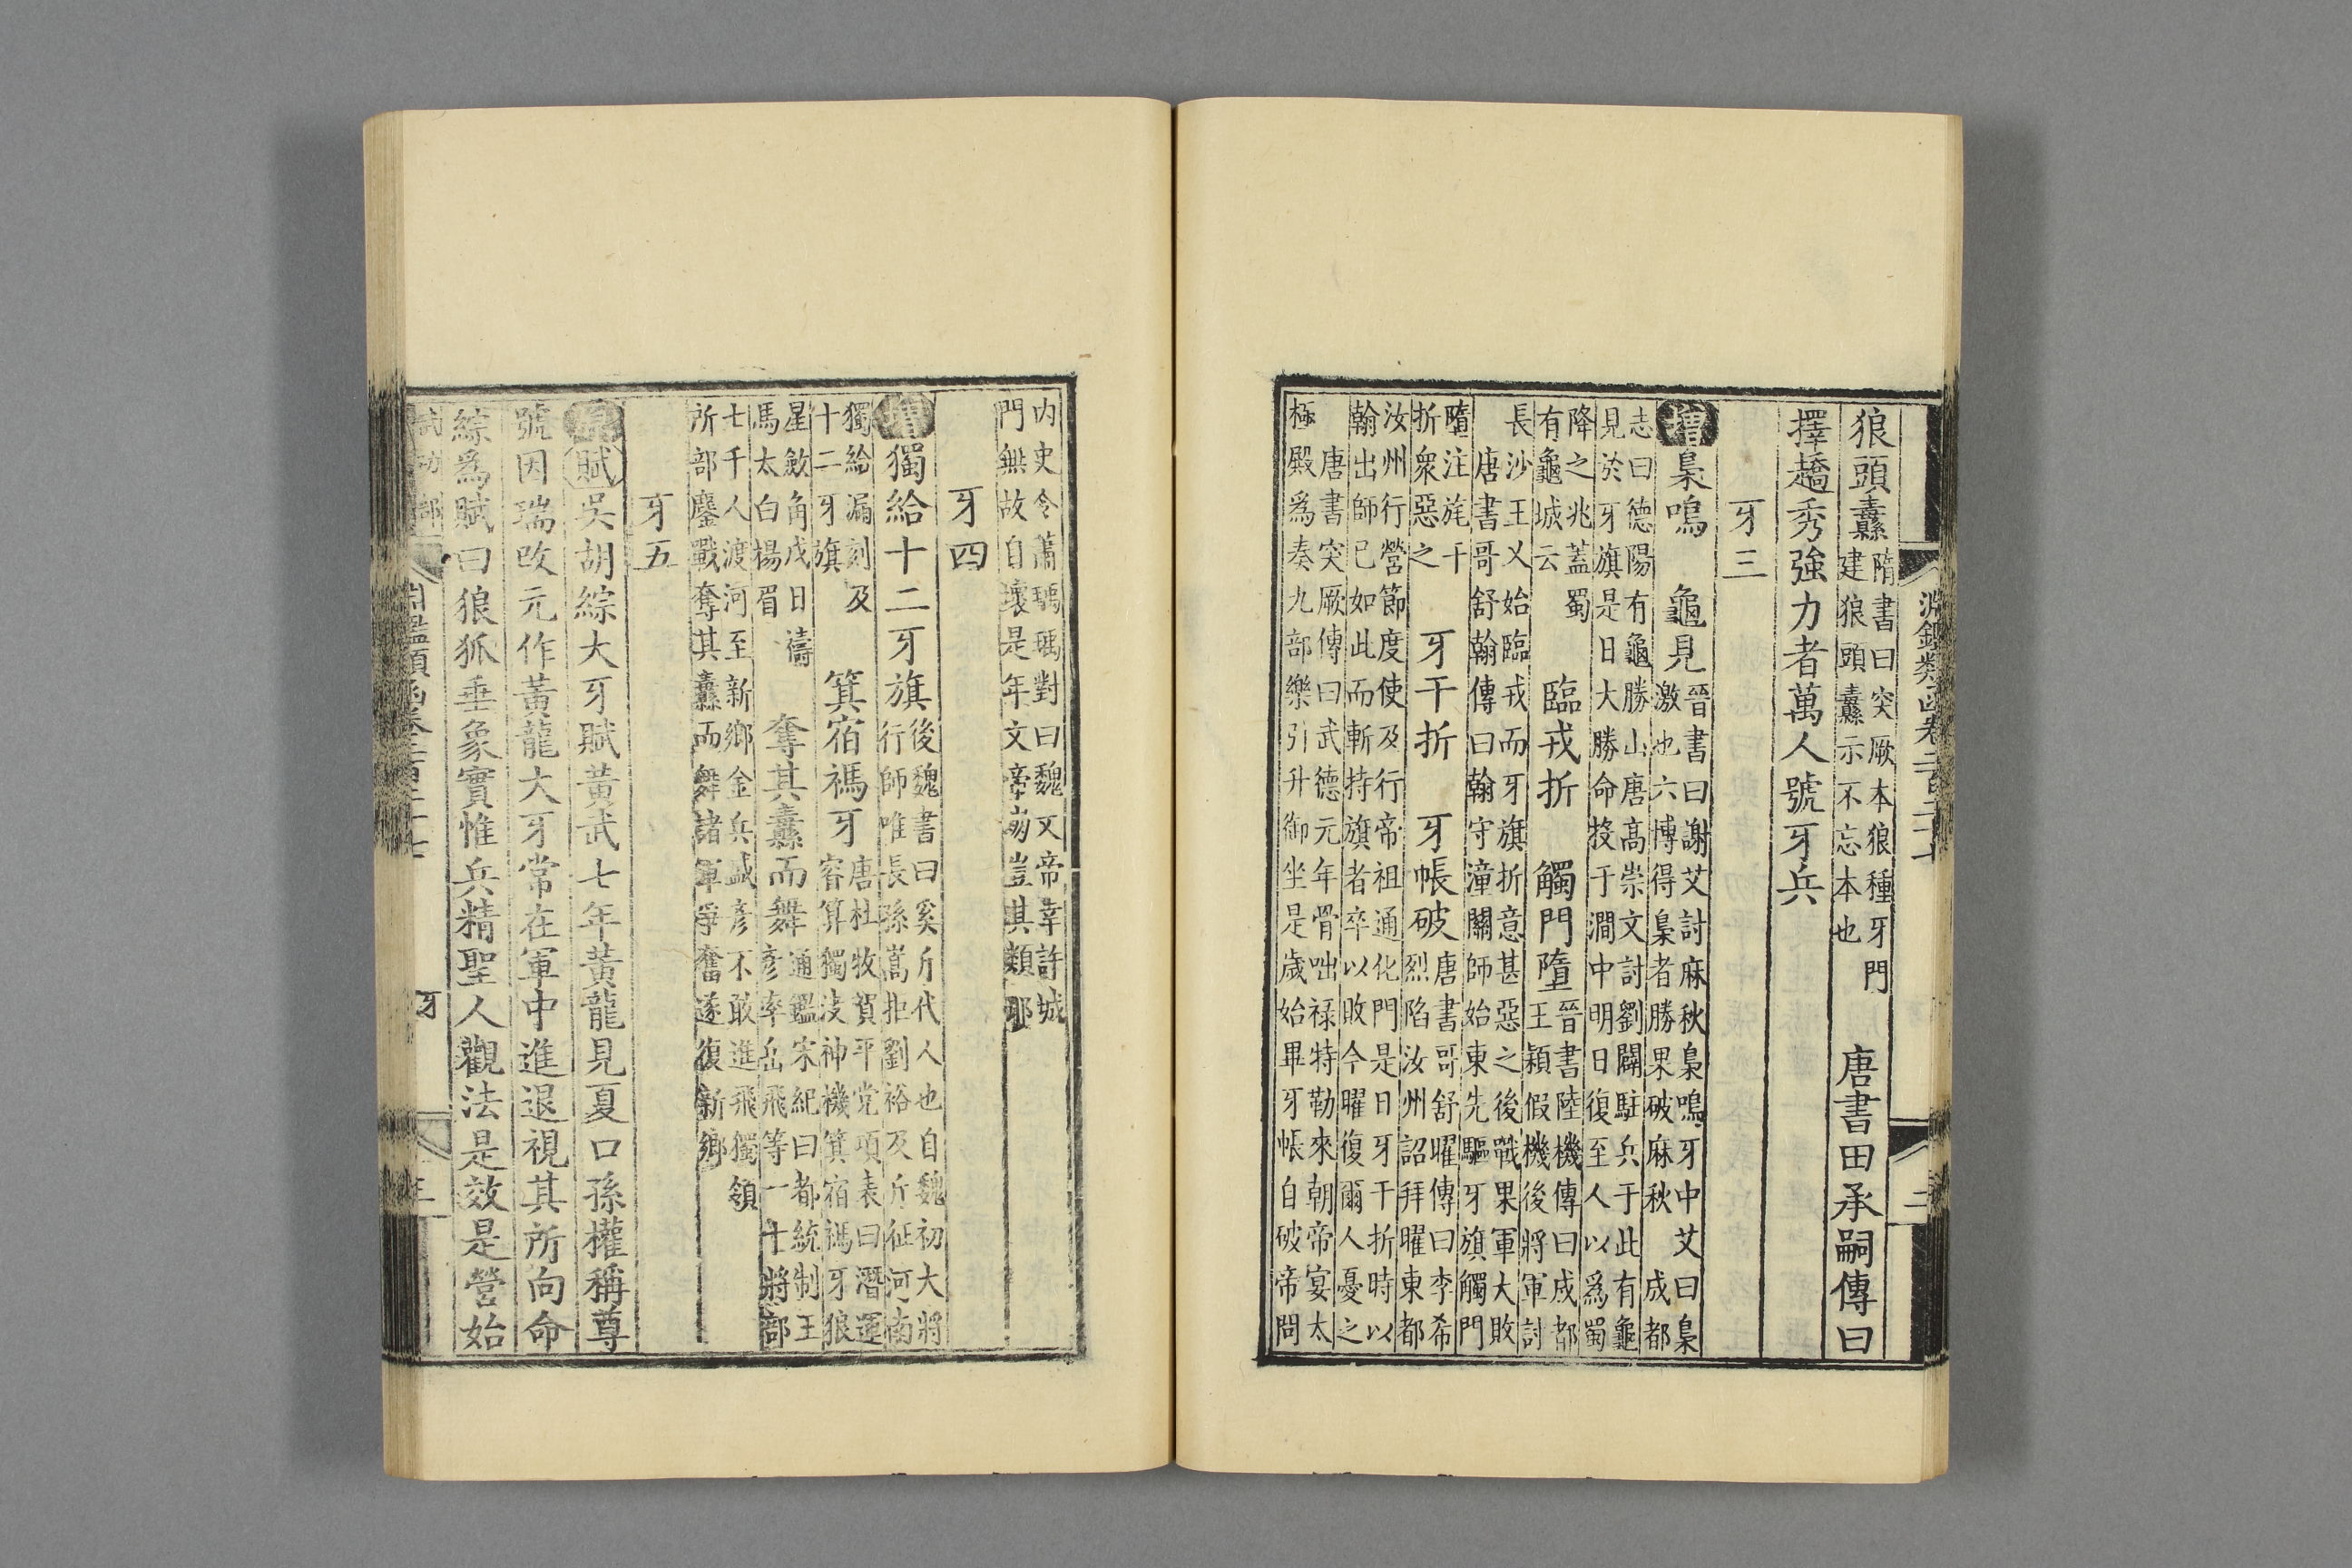 淵鑑類函卷二百二十七 二
狼頭纛
隋書曰突厥本狼種牙門
建狼頭纛示不忘本也
唐書田承嗣傳曰
擇趫秀強力者萬人號牙兵
牙三
增梟鳴 龜見
晉書曰謝艾討麻秋梟鳴牙中艾曰梟
激也六博得梟者勝果破麻秋 成都
志曰德陽有龜勝山唐高崇文討劉闢駐兵于此有龜
見於牙旗是日大勝命投于澗中明日復至人以爲蜀
降之兆蓋蜀
有龜城云
臨戎折 觸門墮
晉書陸機傳曰成都
王穎假機後將軍討
長沙王乂始臨戎而牙旗折意甚惡之後戰果軍大敗
唐書哥舒翰傳曰翰守潼關師始東先驅牙旗觸門
墮注旄干
折衆惡之
牙干折 牙帳破
唐書哥舒曜傳曰李希
烈陷汝州詔拜曜東都
汝州行營節度使及行帝祖通化門是日牙干折時以
翰出師已如此而斬持旗者卒以敗今曜復爾人憂之
唐書突厥傳曰武德元年骨咄祿特勒來朝帝宴太
極殿爲奏九部樂引升御坐是歲始畢牙帳自破帝問
內史令蕭瑀瑀對曰魏文帝幸許城
門無故自壞是年文帝崩豈其類耶
牙四
增獨給十二牙旗
後魏書曰奚斤代人也自魏初大將
行師唯長孫嵩拒劉裕及斤征河南
獨給漏刻及
十二牙旗
箕宿禡牙
唐杜牧賀平党項表曰潛運
睿算獨決神機箕宿禡牙狼
星斂角戊日禱
馬太白揚眉
奪其纛而舞
通鑑宋紀曰都統制王
彥率岳飛等一十將部
七千人渡河至新鄉金兵盛彥不敢進飛獨領
所部鏖戰奪其纛而舞諸軍爭奮遂復新鄉
牙五
原賦吳胡綜大牙賦黃武七年黃龍見夏口孫權稱尊
號因瑞改元作黃龍大牙常在軍中進退視其所向命
綜爲賦曰狼狐垂象實惟兵精聖人觀法是效是營始
淵鑑類函卷二百二十七 牙 三